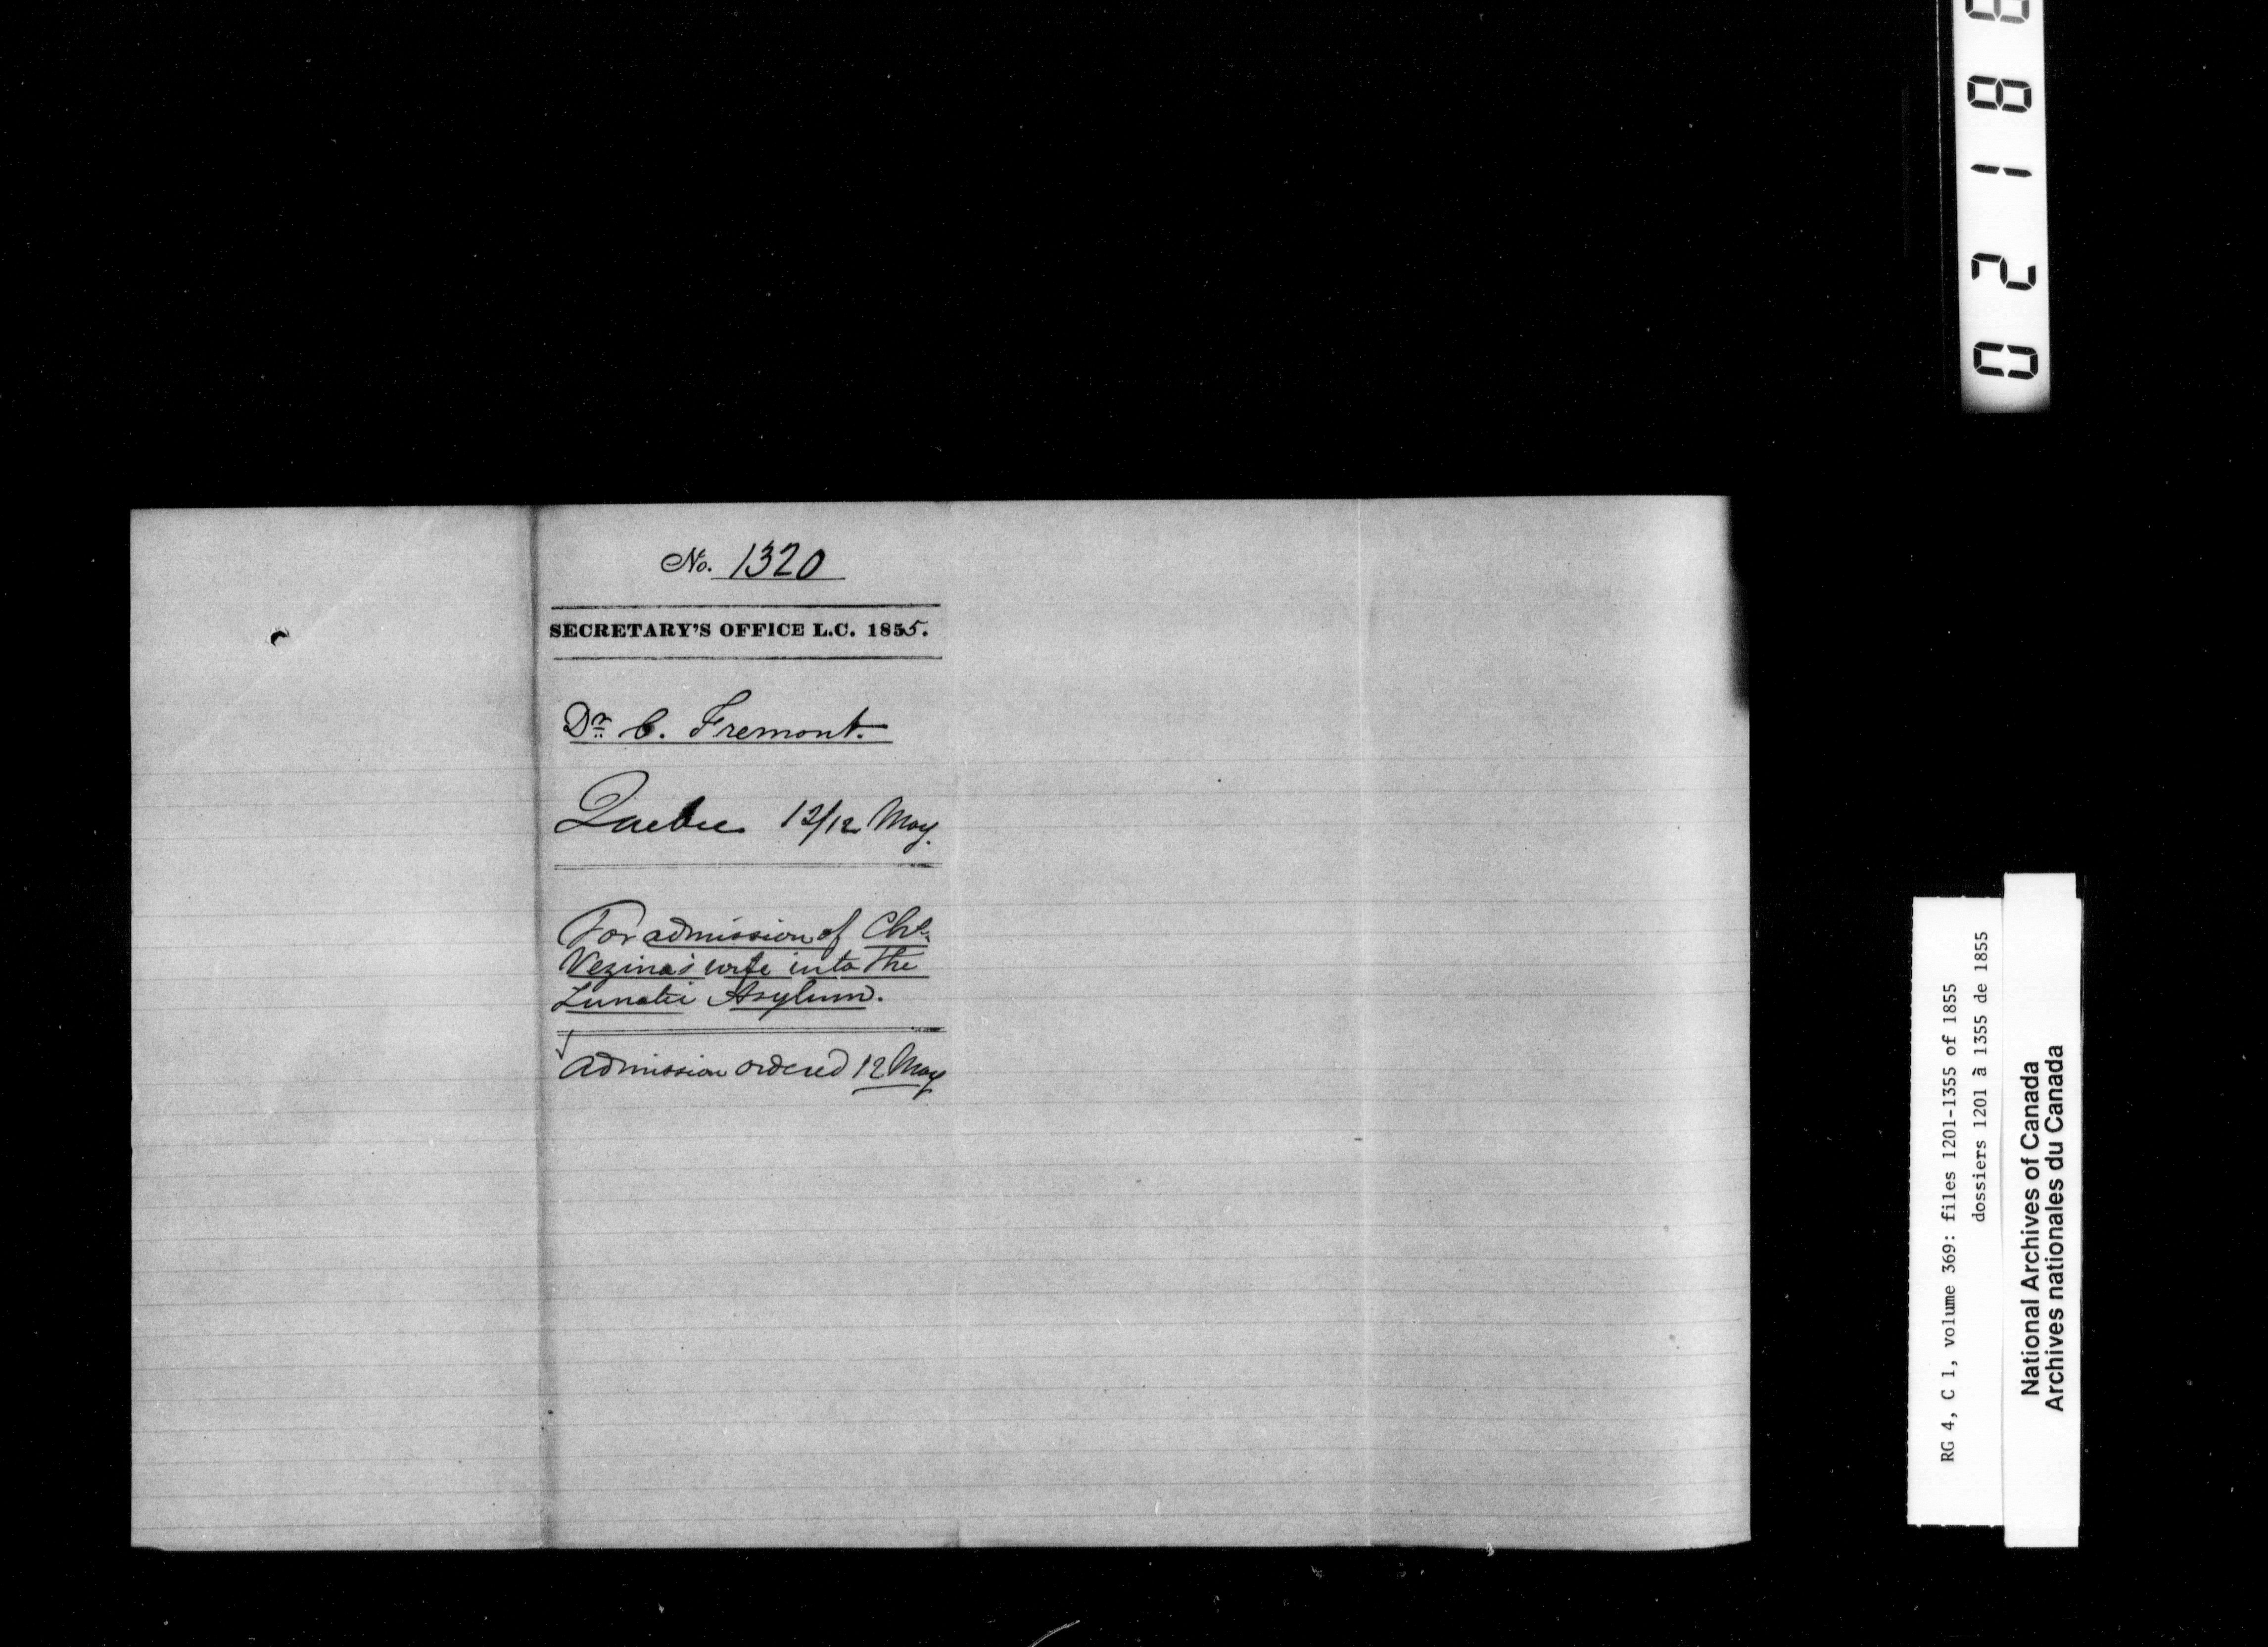 No. 1320
SECRETARY'S OFFICE L.C. 1855.
Dr. C. Fremont.
Quebec 12/12 May.
For admission of Chs.
Vezina's wife into the
Lunatic Asylum.
Admission ordered 12 May
02188
RG 4, C 1, volume 369: files 1201-1355 of 1855
dossiers 1201 à 1355 de 1855
National Archives of Canada
Archives nationales du Canada